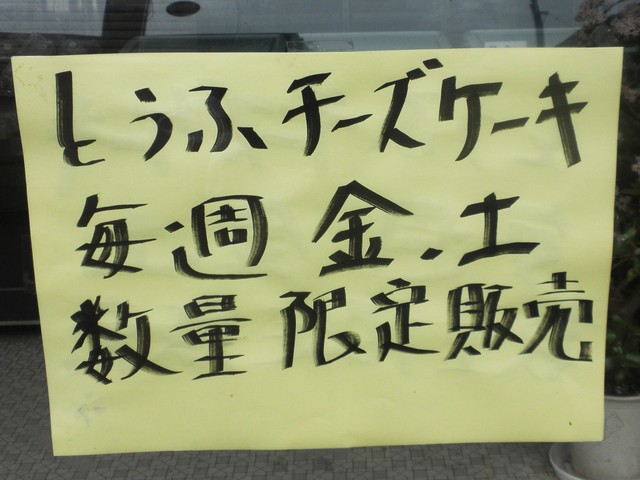 とうふチーズケーキ
毎週 金.土
数量 限定販売